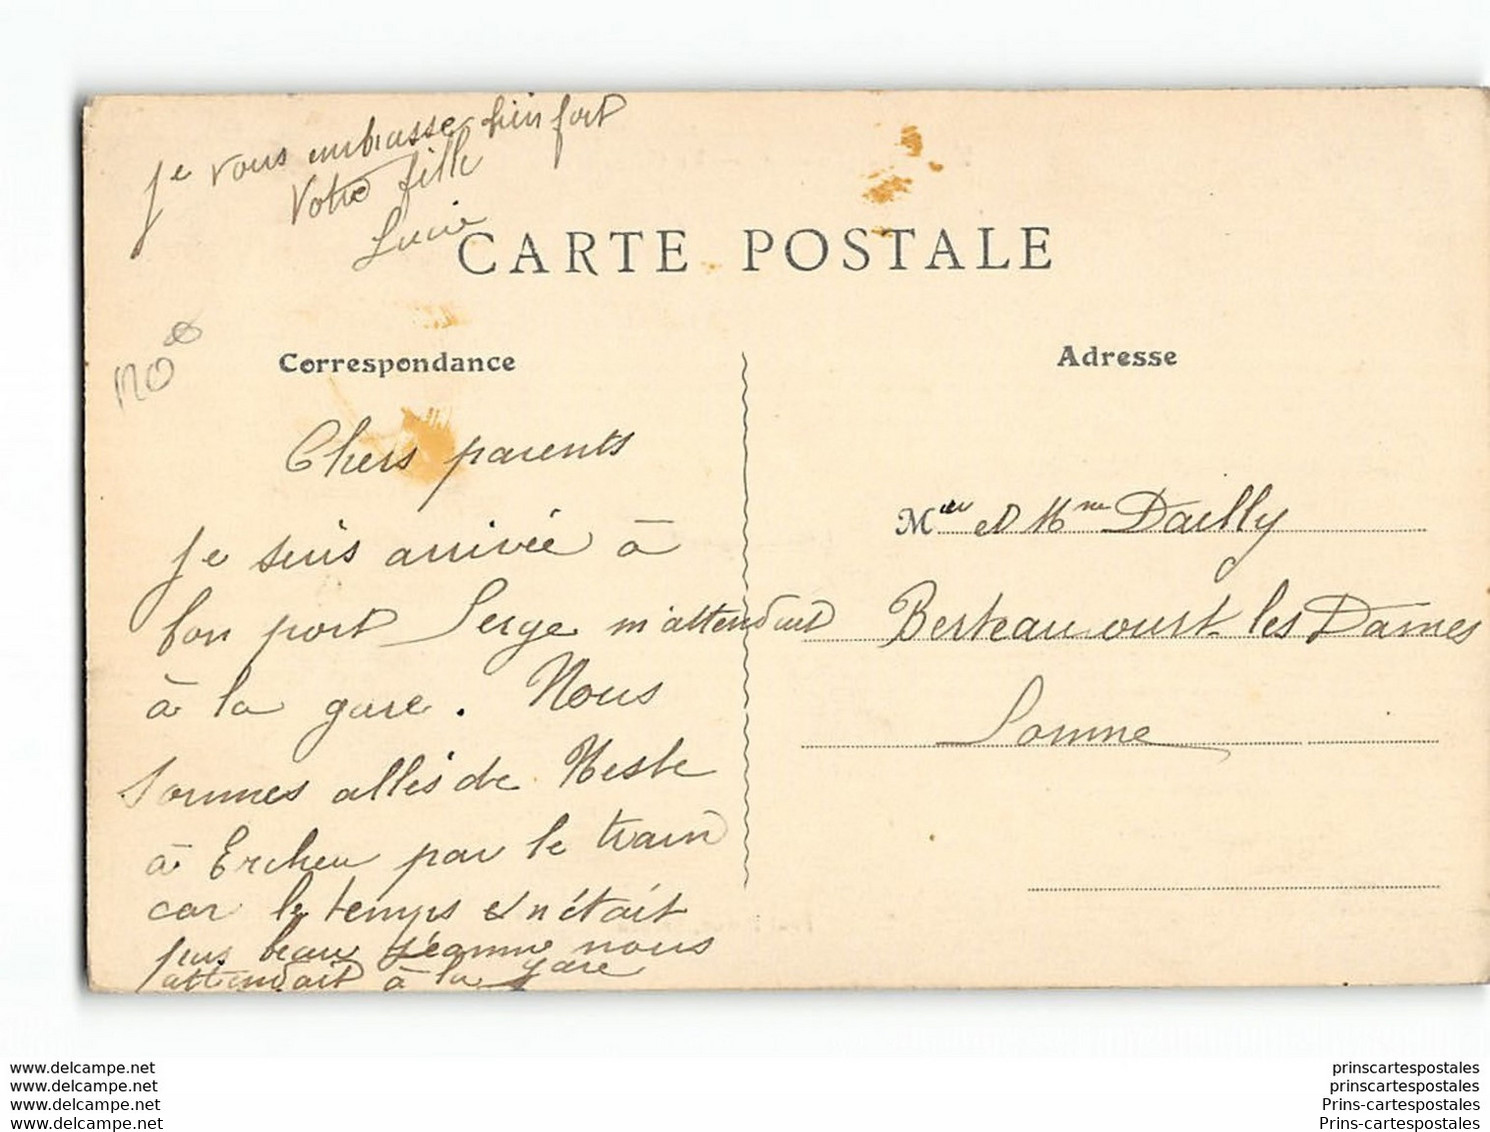 Je vous embrasse bien fort
Votre fille
Lucie
CARTE POSTALE
Correspondance
Adresse
Chers parents
Je suis arrivée à
bon port Serge m'attendait
à la gare. Nous
sommes allés de Nesle
à Ercheu par le train
car le temps n'était
pas beau Jéanne nous
attendait à la gare
Mr et Mme Dailly
Berteaucourt les Dames
Somme
www.delcampe.net
www.delcampe.net
www.delcampe.net
www.delcampe.net
prinscartespostales
prinscartespostales
Prins-cartespostales
Prins-cartespostales